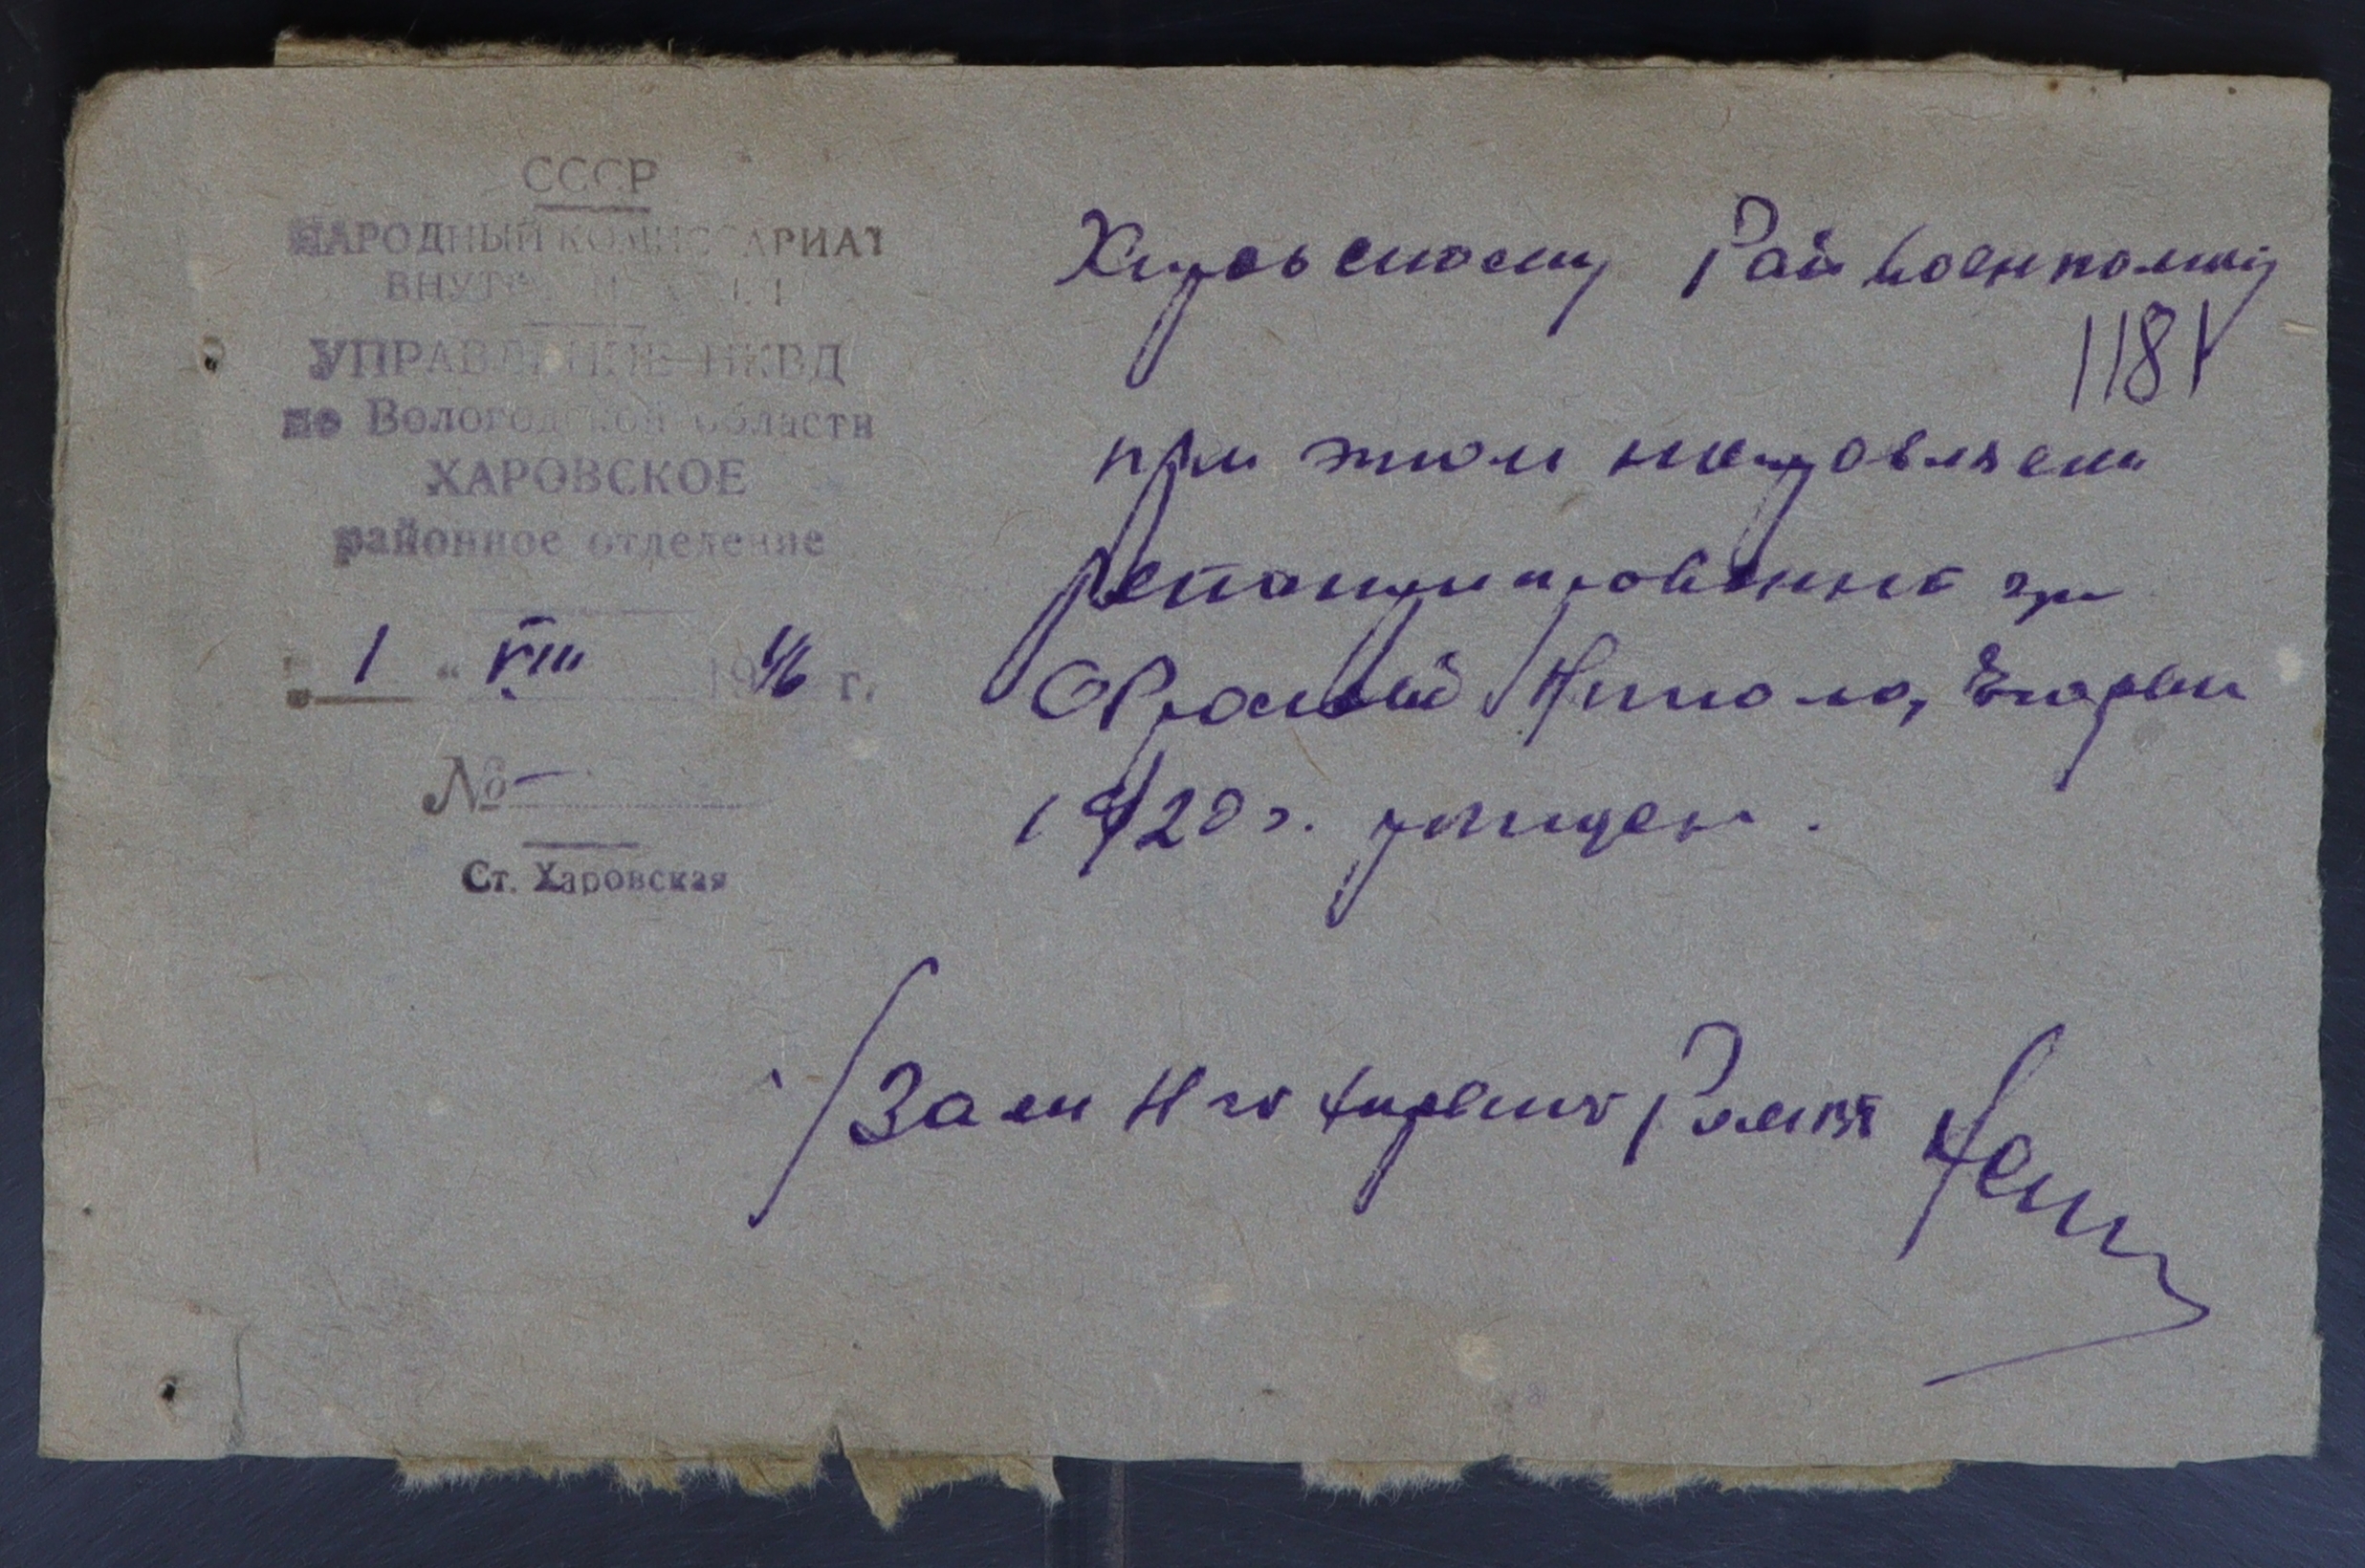 СССР
НАРОДНЫЙ КОМИССАРИАТ
ВНУТРЕННИХ ДЕЛ
УПРАВЛЕНИЕ НКВД
по Вологодской области
ХАРОВСКОЕ
районное отделение
1 " VIII 1946 г.
№ —
Ст. Харовская
Харовскому Райвоенкому
1181
при этом направляем
Репатриированный гр
Николай
1920 г. рожден.
Зам Нач Харовского